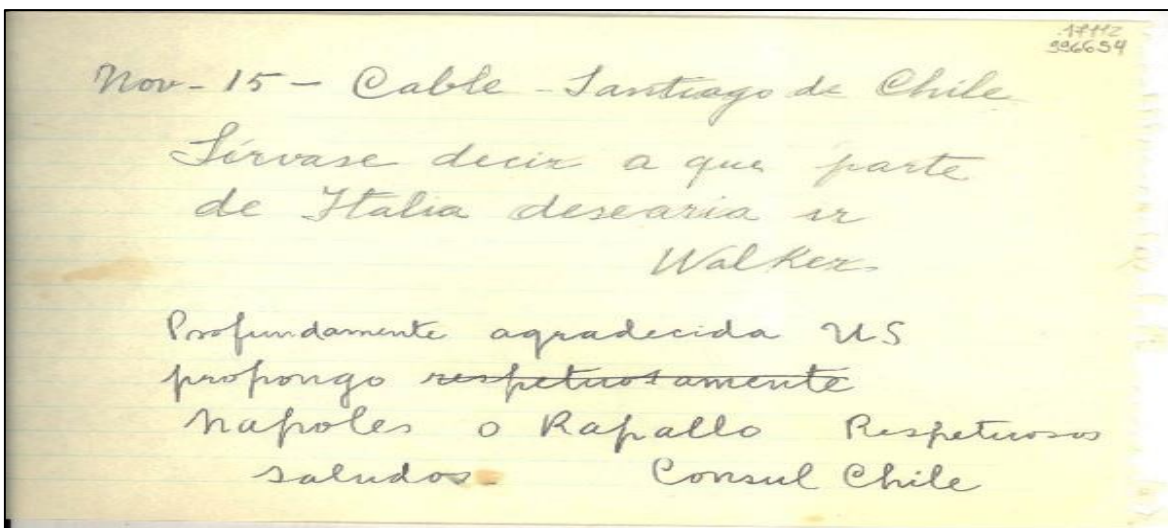 17112
996654
Nov-15- Cable - Santiago de Chile
Sírvase decir a que parte
de Italia desearia ir
Walker
Profundamente agradecida US
propongo respetuosamente
Napoles o Rapallo Respetuosos
saludos Consul Chile